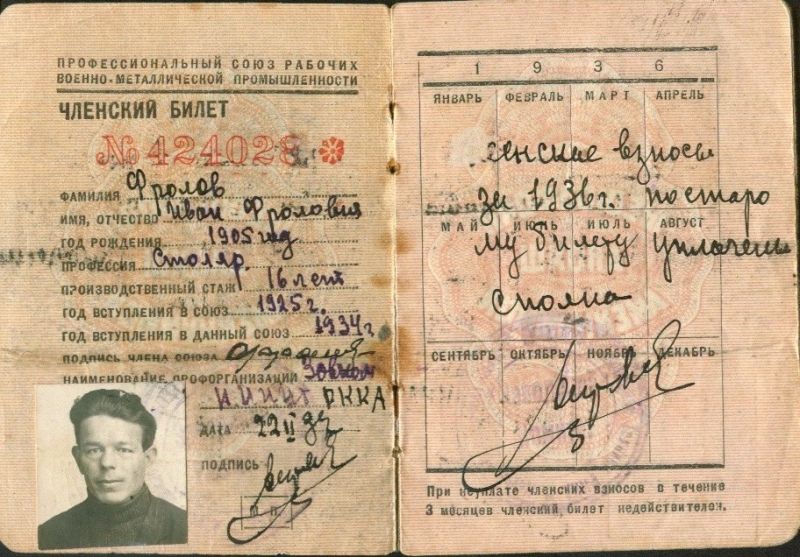 ПРОФЕССИОНАЛЬНЫЙ СОЮЗ РАБОЧИХ
ВОЕННО-МЕТАЛЛИЧЕСКОЙ ПРОМЫШЛЕННОСТИ
ЧЛЕНСКИЙ БИЛЕТ
№ 424028
ФАМИЛИЯ Фролов
ИМЯ, ОТЧЕСТВО Иван Фролович
ГОД РОЖДЕНИЯ 1905 год
ПРОФЕССИЯ Столяр.
ПРОИЗВОДСТВЕННЫЙ СТАЖ 16 лет
ГОД ВСТУПЛЕНИЯ В СОЮЗ 1925 г.
ГОД ВСТУПЛЕНИЯ В ДАННЫЙ СОЮЗ 1934 г
ПОДПИСЬ ЧЛЕНА СОЮЗА
НАИМЕНОВАНИЕ ПРОФОРГАНИЗАЦИИ
РККА
ДАТА 22 II 37
ПОДПИСЬ
М. П.
1 9 3 6
ЯНВАРЬ ФЕВРАЛЬ МАРТ АПРЕЛЬ
взносы
за 1936 г. по старо
МАЙ ИЮНЬ ИЮЛЬ АВГУСТ
му билету уплачены
сполна
СЕНТЯБРЬ ОКТЯБРЬ НОЯБРЬ ДЕКАБРЬ
При неуплате членских взносов в течение
3 месяцев членский билет недействителен.